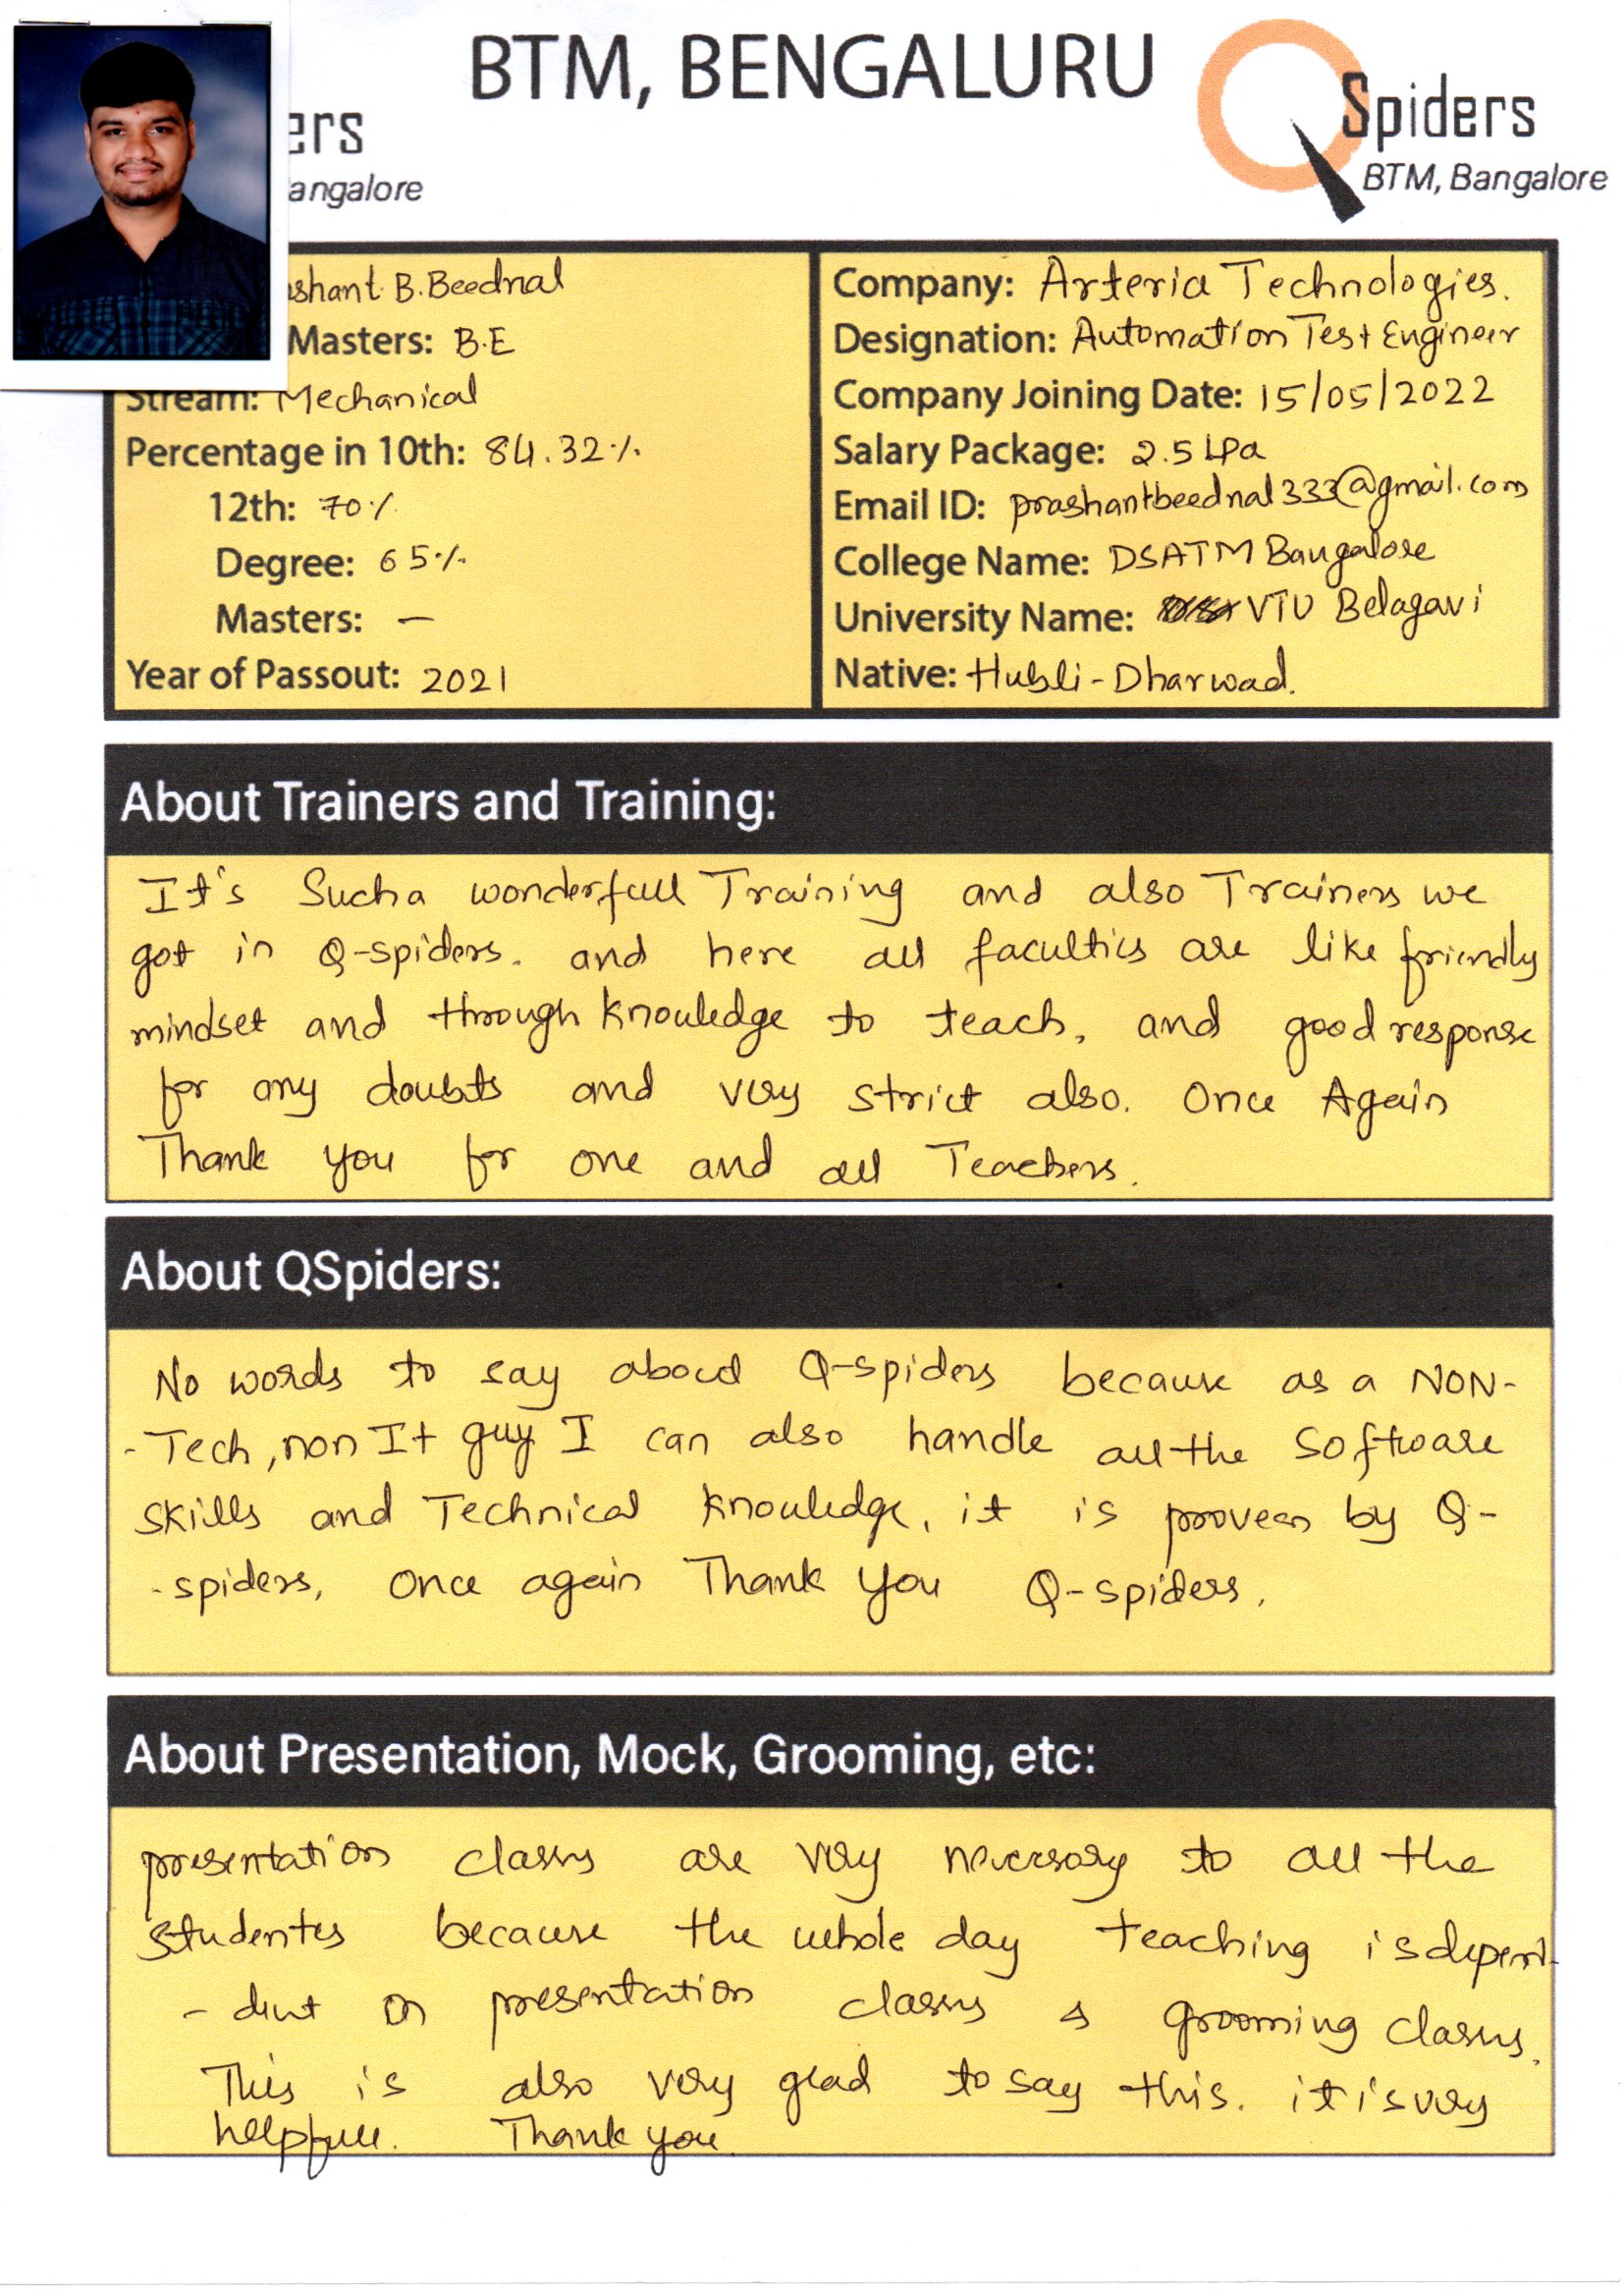 BTM, BENGALURU
ers
angalore
QSpiders
BTM, Bangalore
shant B.Beednal
Masters: B.E
Stream: Mechanical
Percentage in 10th: 84.32%
12th: 70%
Degree: 65%
Masters: —
Year of Passout: 2021
Company: Arteria Technologies.
Designation: Automation Test Engineer
Company Joining Date: 15/05/2022
Salary Package: 2.5 LPa
Email ID: prashantbeednal333@gmail.com
College Name: DSATM Bangalore
University Name: VTU Belagavi
Native: Hubli-Dharwad.
About Trainers and Training:
It's Such a wonderfull Training and also Trainers we
got in Q-spiders. and here all faculties are like friendly
mindset and through knowledge to teach, and good response
for any doubts and very strict also. Once Again
Thank you for one and all Teachers.
About QSpiders:
No words to say about Q-spiders because as a NON-
-Tech, non It guy I can also handle all the Software
skills and Technical knowledge, it is proven by Q-
-spiders, once again Thank you Q-spiders,
About Presentation, Mock, Grooming, etc:
presentation classes are very necessary to all the
studentes because the whole day teaching is depen-
-dent on presentation classes & grooming classes.
This is also very glad to say this. it is very
helpfull. Thank you.